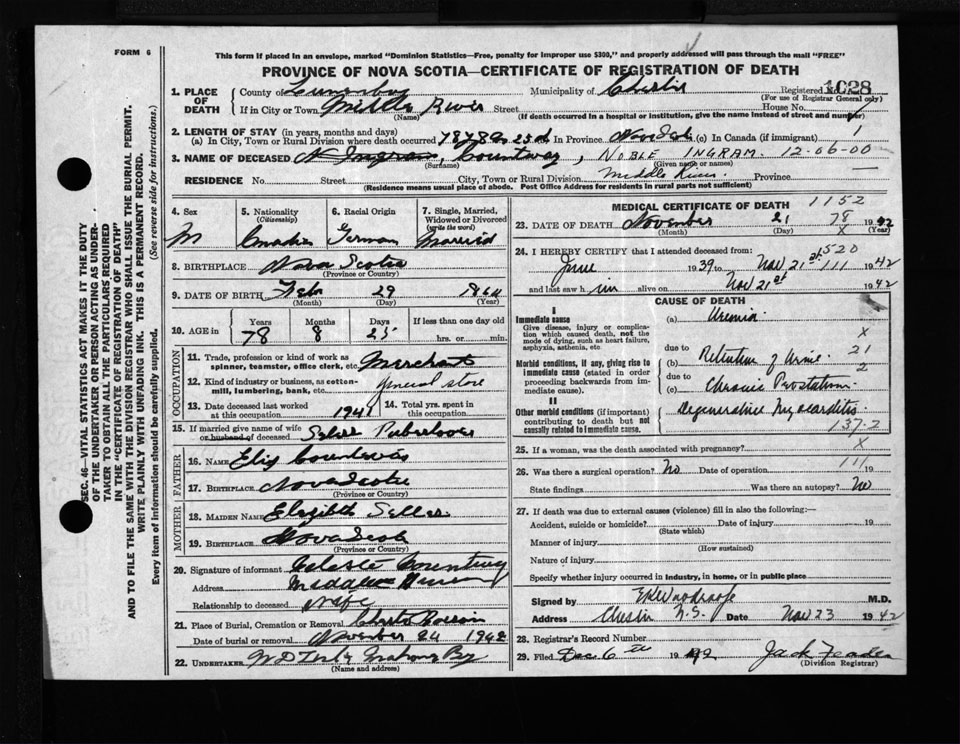 FORM 6
This form if placed in an envelope, marked "Dominion Statistics—Free, penalty for improper use $300," and properly addressed will pass through the mail "FREE"
PROVINCE OF NOVA SCOTIA—CERTIFICATE OF REGISTRATION OF DEATH
1. PLACE OF DEATH
County of Lunenburg Municipality of Chester Registered No. 1028
(For use of Registrar General only)
If in City or Town Middle River Street House No.
(Name) (If death occurred in a hospital or institution, give the name instead of street and number)
2. LENGTH OF STAY (in years, months and days)
(a) In City, Town or Rural Division where death occurred 78 y 8 m 25 d in Province (c) In Canada (if immigrant)
3. NAME OF DECEASED N Ingram, Countway, NOBLE INGRAM. 12-06-00
(Surname) (Given name or names)
RESIDENCE No. Street City, Town or Rural Division Middle River. Province
(Residence means usual place of abode. Post Office Address for residents in rural parts not sufficient)
4. Sex 5. Nationality 6. Racial Origin 7. Single, Married, Widowed or Divorced
(Citizenship) (write the word)
M Canadian German Married
8. BIRTHPLACE Nova Scotia
(Province or Country)
9. DATE OF BIRTH Feb 29 1864
(Month) (Day) (Year)
10. AGE in Years Months Days If less than one day old
78 8 25 hrs. or min.
OCCUPATION
11. Trade, profession or kind of work as spinner, teamster, office clerk, etc. Merchant
12. Kind of industry or business, as cotton-mill, lumbering, bank, etc. General store
13. Date deceased last worked at this occupation 1941 14. Total yrs. spent in this occupation.
15. If married give name of wife or husband of deceased
FATHER
16. NAME Countway
17. BIRTHPLACE Nova Scotia
(Province or Country)
MOTHER
18. MAIDEN NAME Elizabeth
19. BIRTHPLACE Nova Scotia
(Province or Country)
20. Signature of informant Celeste Countway
Address Middle River
Relationship to deceased wife
21. Place of Burial, Cremation or Removal Chester
Date of burial or removal November 24 1942
22. UNDERTAKER Mahone Bay
(Name and address)
MEDICAL CERTIFICATE OF DEATH 1152
23. DATE OF DEATH November 21 78 1942
(Month) (Day) X (Year)
24. I HEREBY CERTIFY that I attended deceased from: 1520
June 1939 to Nov 21st 111 1942
and last saw him alive on Nov 21st 1942
CAUSE OF DEATH
I
Immediate cause (a) Uremia
Give disease, injury or complication which caused death, not the mode of dying, such as heart failure, asphyxia, asthenia, etc.
X
due to 21
Morbid conditions, if any, giving rise to immediate cause (stated in order proceeding backwards from immediate cause).
(b) Retention of Urine 2
due to
(c) Chronic
II
Other morbid conditions (if important) contributing to death but not causally related to immediate cause.
Degenerative Myocarditis
137-2
25. If a woman, was the death associated with pregnancy? X
26. Was there a surgical operation? No Date of operation 111 19
State findings Was there an autopsy? No
27. If death was due to external causes (violence) fill in also the following:—
Accident, suicide or homicide? Date of injury 19
(State which)
Manner of injury
(How sustained)
Nature of injury
Specify whether injury occurred in industry, in home, or in public place
Signed by M.D.
Address Chester N.S. Date Nov 23 1942
28. Registrar's Record Number
29. Filed Dec 6th 1942 Jack
(Division Registrar)
SEC. 46—VITAL STATISTICS ACT MAKES IT THE DUTY
OF THE UNDERTAKER OR PERSON ACTING AS UNDER-
TAKER TO OBTAIN ALL THE PARTICULARS REQUIRED
IN THE "CERTIFICATE OF REGISTRATION OF DEATH"
AND TO FILE THE SAME WITH THE DIVISION REGISTRAR WHO SHALL ISSUE THE BURIAL PERMIT.
WRITE PLAINLY WITH UNFADING INK. THIS IS A PERMANENT RECORD.
Every item of information should be carefully supplied. (See reverse side for instructions.)